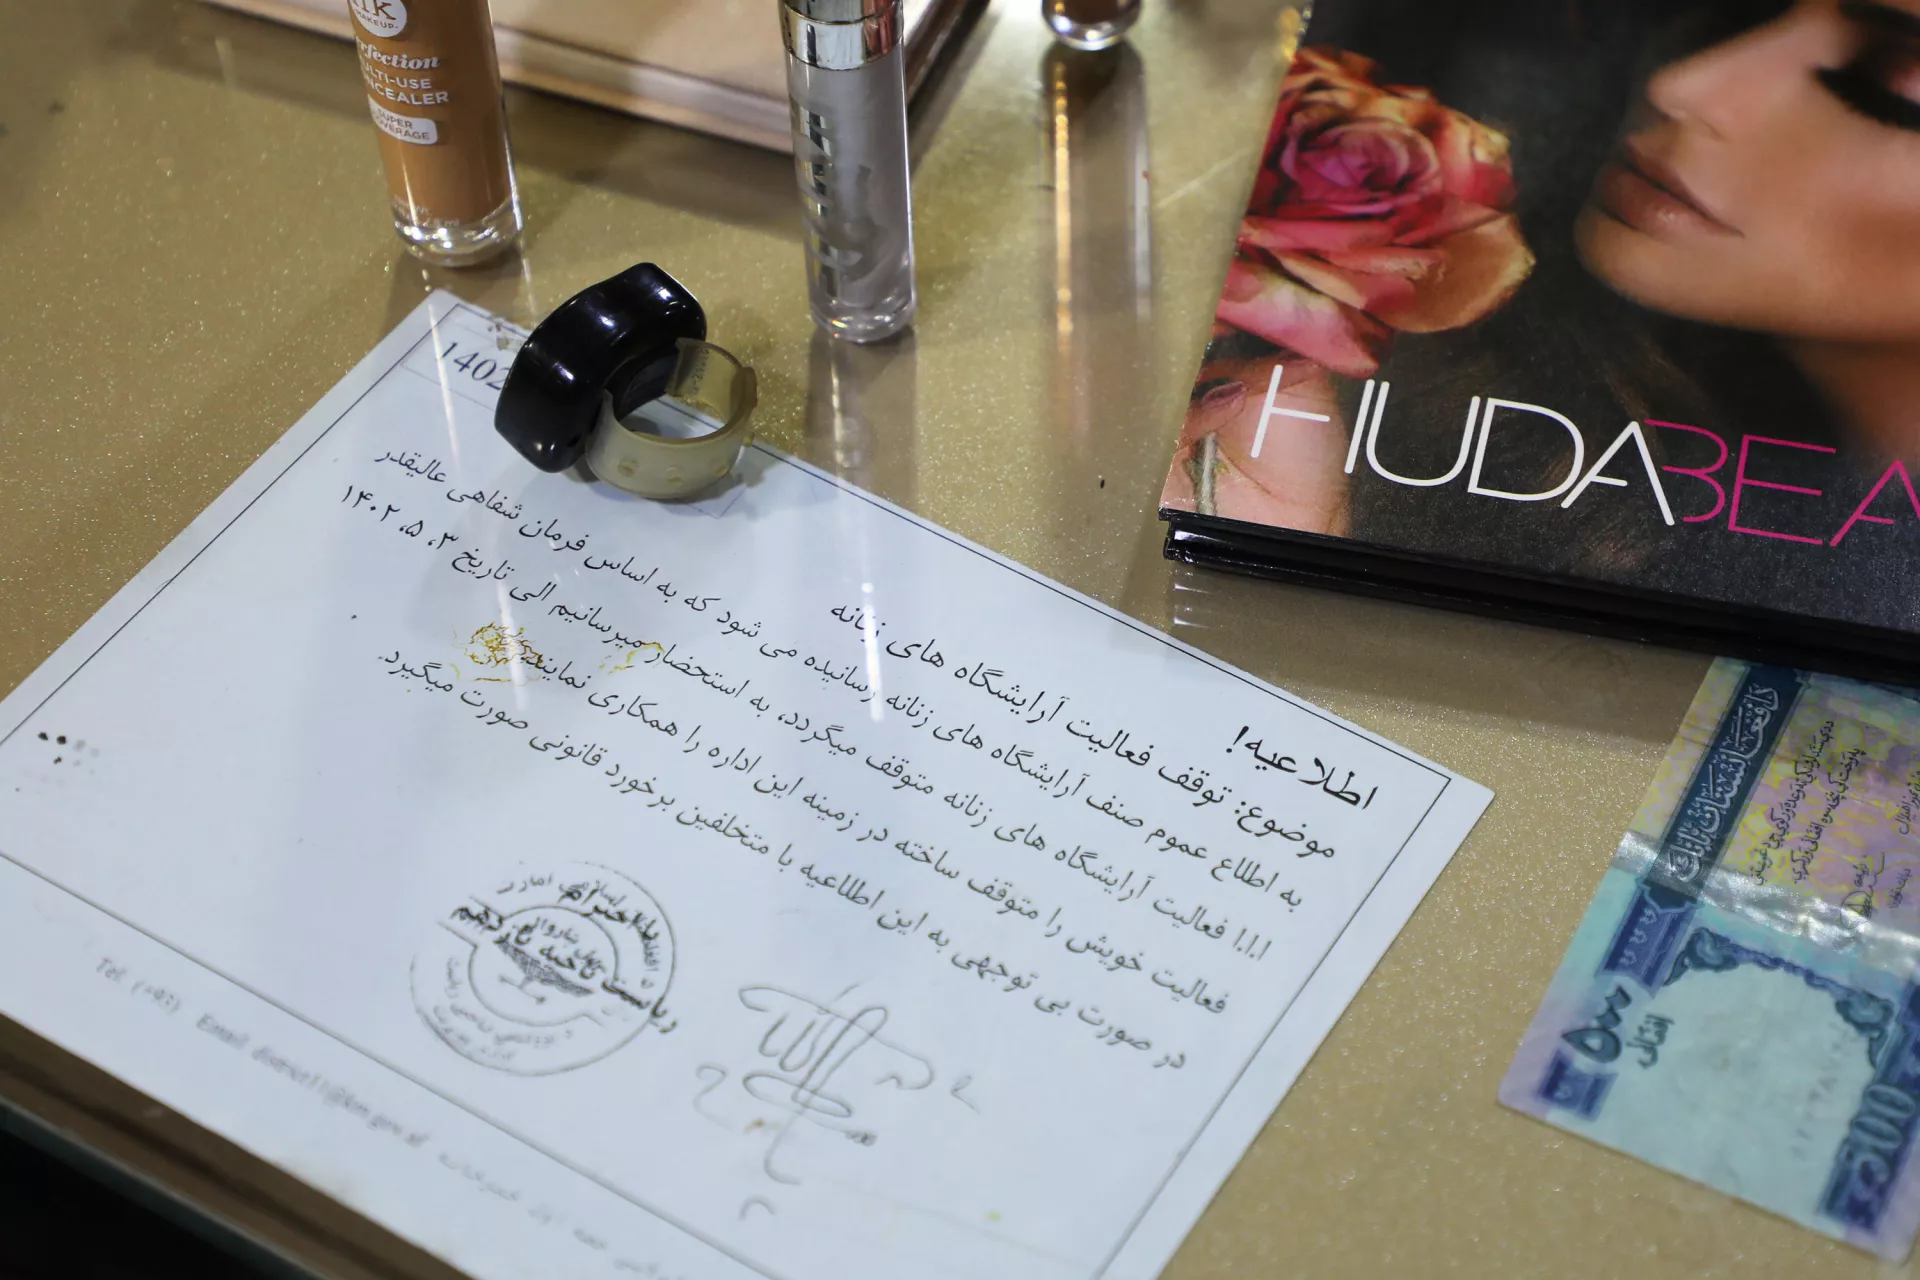 RK
MAKEUP
Perfection
MULTI-USE
CONCEALER
SUPER
COVERAGE
HUDABEA
1402
اطلاعیه!
موضوع: توقف فعالیت آرایشگاه های زنانه
به اطلاع عموم صنف آرایشگاه های زنانه رسانیده می شود که به اساس فرمان شفاهی عالیقدر
ا.ا.ا فعالیت آرایشگاه های زنانه متوقف میگردد، به استحضار میرسانیم الی تاریخ ۳، ۵، ۱۴۰۲
فعالیت خویش را متوقف ساخته در زمینه این اداره را همکاری نمایند
در صورت بی توجهی به این اطلاعیه با متخلفین برخورد قانونی صورت میگیرد.
بااحترام
ریاست ناحیه یازدهم
Email district11@km.gov.af
د افغانستان بانک
۵۰۰
افغانۍ
500